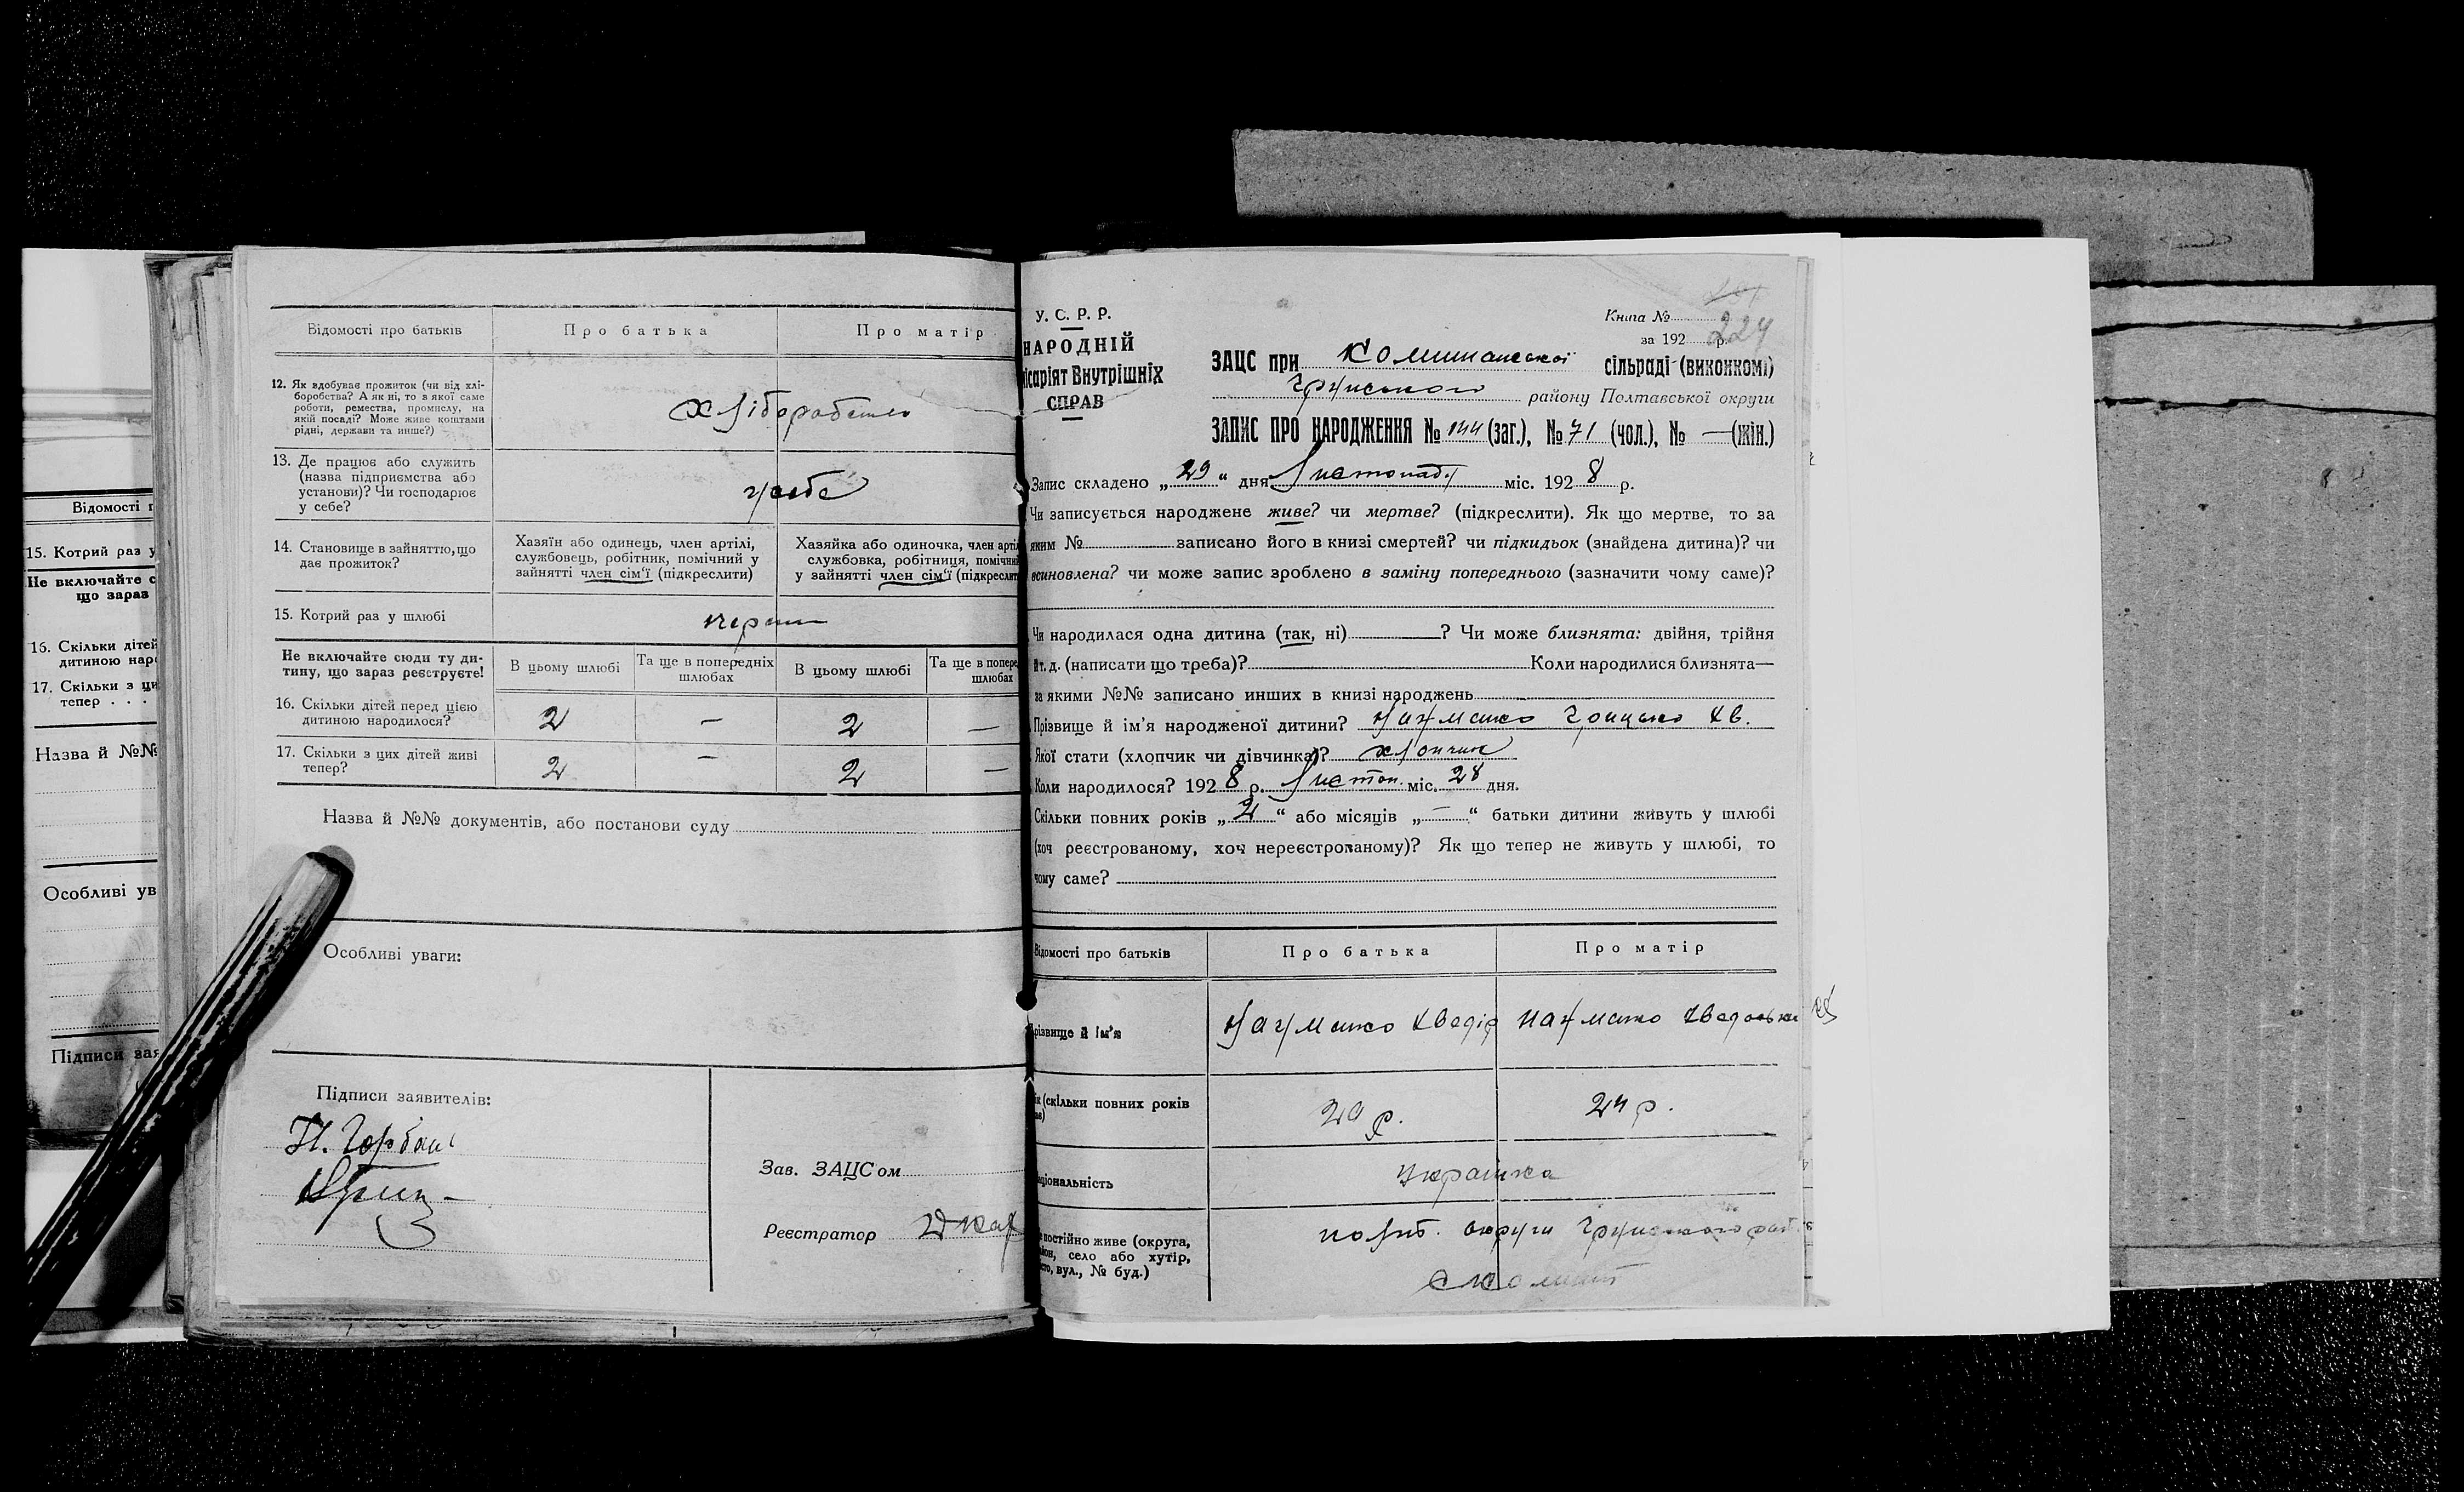 Відомості п
15. Котрий раз у
Не включайте с
що зараз
16. Скільки дітей
дитиною нар
17. Скільки з ци
тепер . . .
Назва й №№
Особливі ув
Підписи зая
Відомості про батьків
Про батька
Про матір
12. Як здобуває прожиток (чи від хлі-
боробства? А як ні, то з якої саме
роботи, ремества, промислу, на
якій посаді? Може живе коштами
рідні, держави та инше?)
хліборобство
13. Де працює або служить
(назва підприємства або
установи)? Чи господарює
у себе?
у себе
14. Становище в зайняттю, що
дає прожиток?
Хазяїн або одинець, член артілі,
службовець, робітник, помічний у
зайнятті член сім'ї (підкреслити)
Хазяйка або одиночка, член арті
службовка, робітниця, помічни
у зайнятті член сім'ї (підкреслит
15. Котрий раз у шлюбі
перший
Не включайте сюди ту ди-
тину, що зараз реєструєте!
В цьому шлюбі
Та ще в попередніх
шлюбах
В цьому шлюбі
Та ще в попере
шлюбах
16. Скільки дітей перед цією
дитиною народилося?
2 — 2 —
17. Скільки з цих дітей живі
тепер?
2 — 2 —
Назва й №№ документів, або постанови суду
Особливі уваги:
Підписи заявителів:
Н. Горбань
Зав. ЗАЦСом
Реєстратор
У. С. Р. Р.
НАРОДНІЙ
місаріят Внутрішніх
СПРАВ
Книга №
224
за 192 р.
ЗАЦС при Комишанської сільраді (виконкомі)
Грунського району Полтавської округи
ЗАПИС ПРО НАРОДЖЕННЯ № 144 (заг.), № 71 (чол.), № — (жін.)
Запис складено „29" дня Листопад. міс. 1928 р.
Чи записується народжене живе? чи мертве? (підкреслити). Як що мертве, то за
яким № записано його в книзі смертей? чи підкидьок (знайдена дитина)? чи
всиновлена? чи може запис зроблено в заміну попереднього (зазначити чому саме)?
Чи народилася одна дитина (так, ні) ? Чи може близнята: двійня, трійня
й т. д. (написати що треба)? Коли народилися близнята—
за якими №№ записано инших в книзі народжень
Прізвище й ім'я народженої дитини? Грицько Хв.
Якої стати (хлопчик чи дівчинка)? хлопчик
Коли народилося? 1928 р. Листоп. міс. 28 дня.
Скільки повних років „2" або місяців „—" батьки дитини живуть у шлюбі
(хоч реєстрованому, хоч нереєстрованому)? Як що тепер не живуть у шлюбі, то
чому саме?
Відомості про батьків
Про батька
Про матір
різвище й ім'я
Хведір
ік (скільки повних років
24 р.
аціональність
Україн­ка
постійно живе (округа,
йон, село або хутір,
сто, вул., № буд.)
Полт. округи Грунського рай.